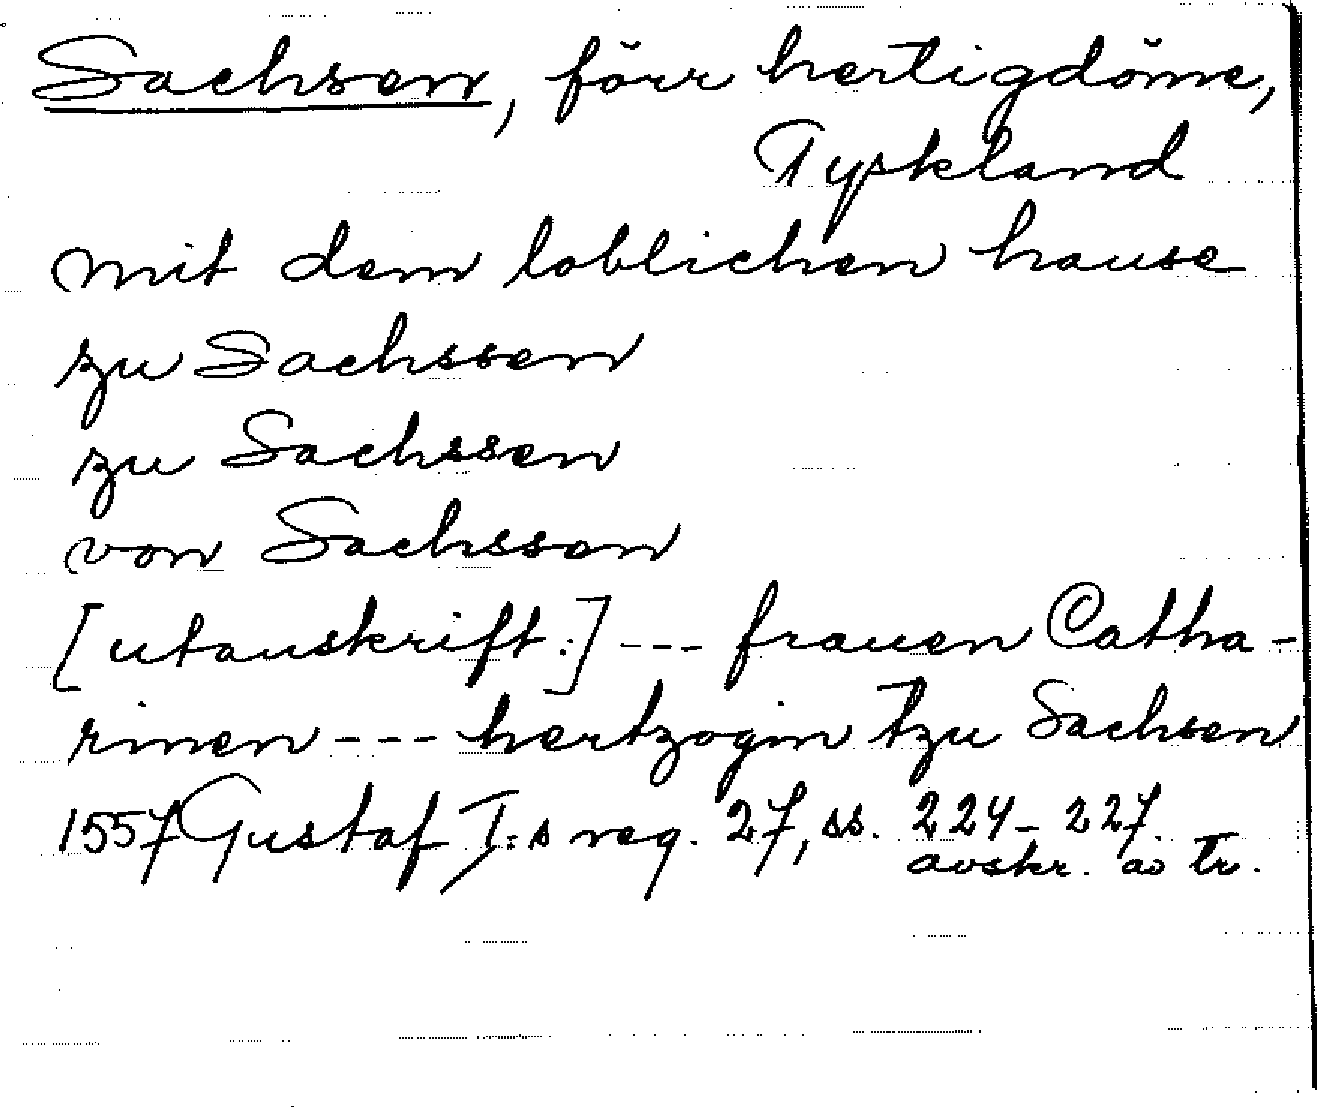 Sachsen, förr hertigdöme,
Tyskland
mit dem loblichen hause
zu Sachssen
zu Sachssen
von Sachsson
[utanskrift:] --- frauen Catha-
rinen --- hertzogin tzu Sachsen
1557 Gustaf I:s reg. 27, ss. 224-227.
avskr. av tr.